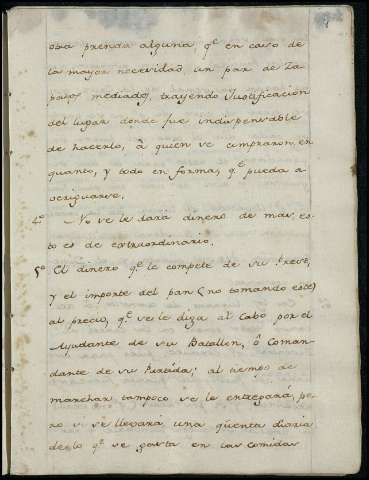 otra prenda alguna, q.e en caso de
la mayor necesidad, un par de Za
patos mediados, trayendo Justificacion
del lugar donde fue indispensable
de hacerlo, à quien se compraron, en
quanto, y todo en forma, q.e pueda a
veriguarse.
4.o No se le dara dinero de mas, es
to es de extraordinario.
5.o El dinero q.e le compete de su Prest,
y el importe del pan (no tomando este)
al precio, q.e se le diga al Cabo por el
Ayudante de su Batallon, ô Coman
dante de su Partida; al tiempo de
marchar tampoco se le entregará, pe
ro si se llevará una quenta diaria
de lo q.e se gasta en las comidas